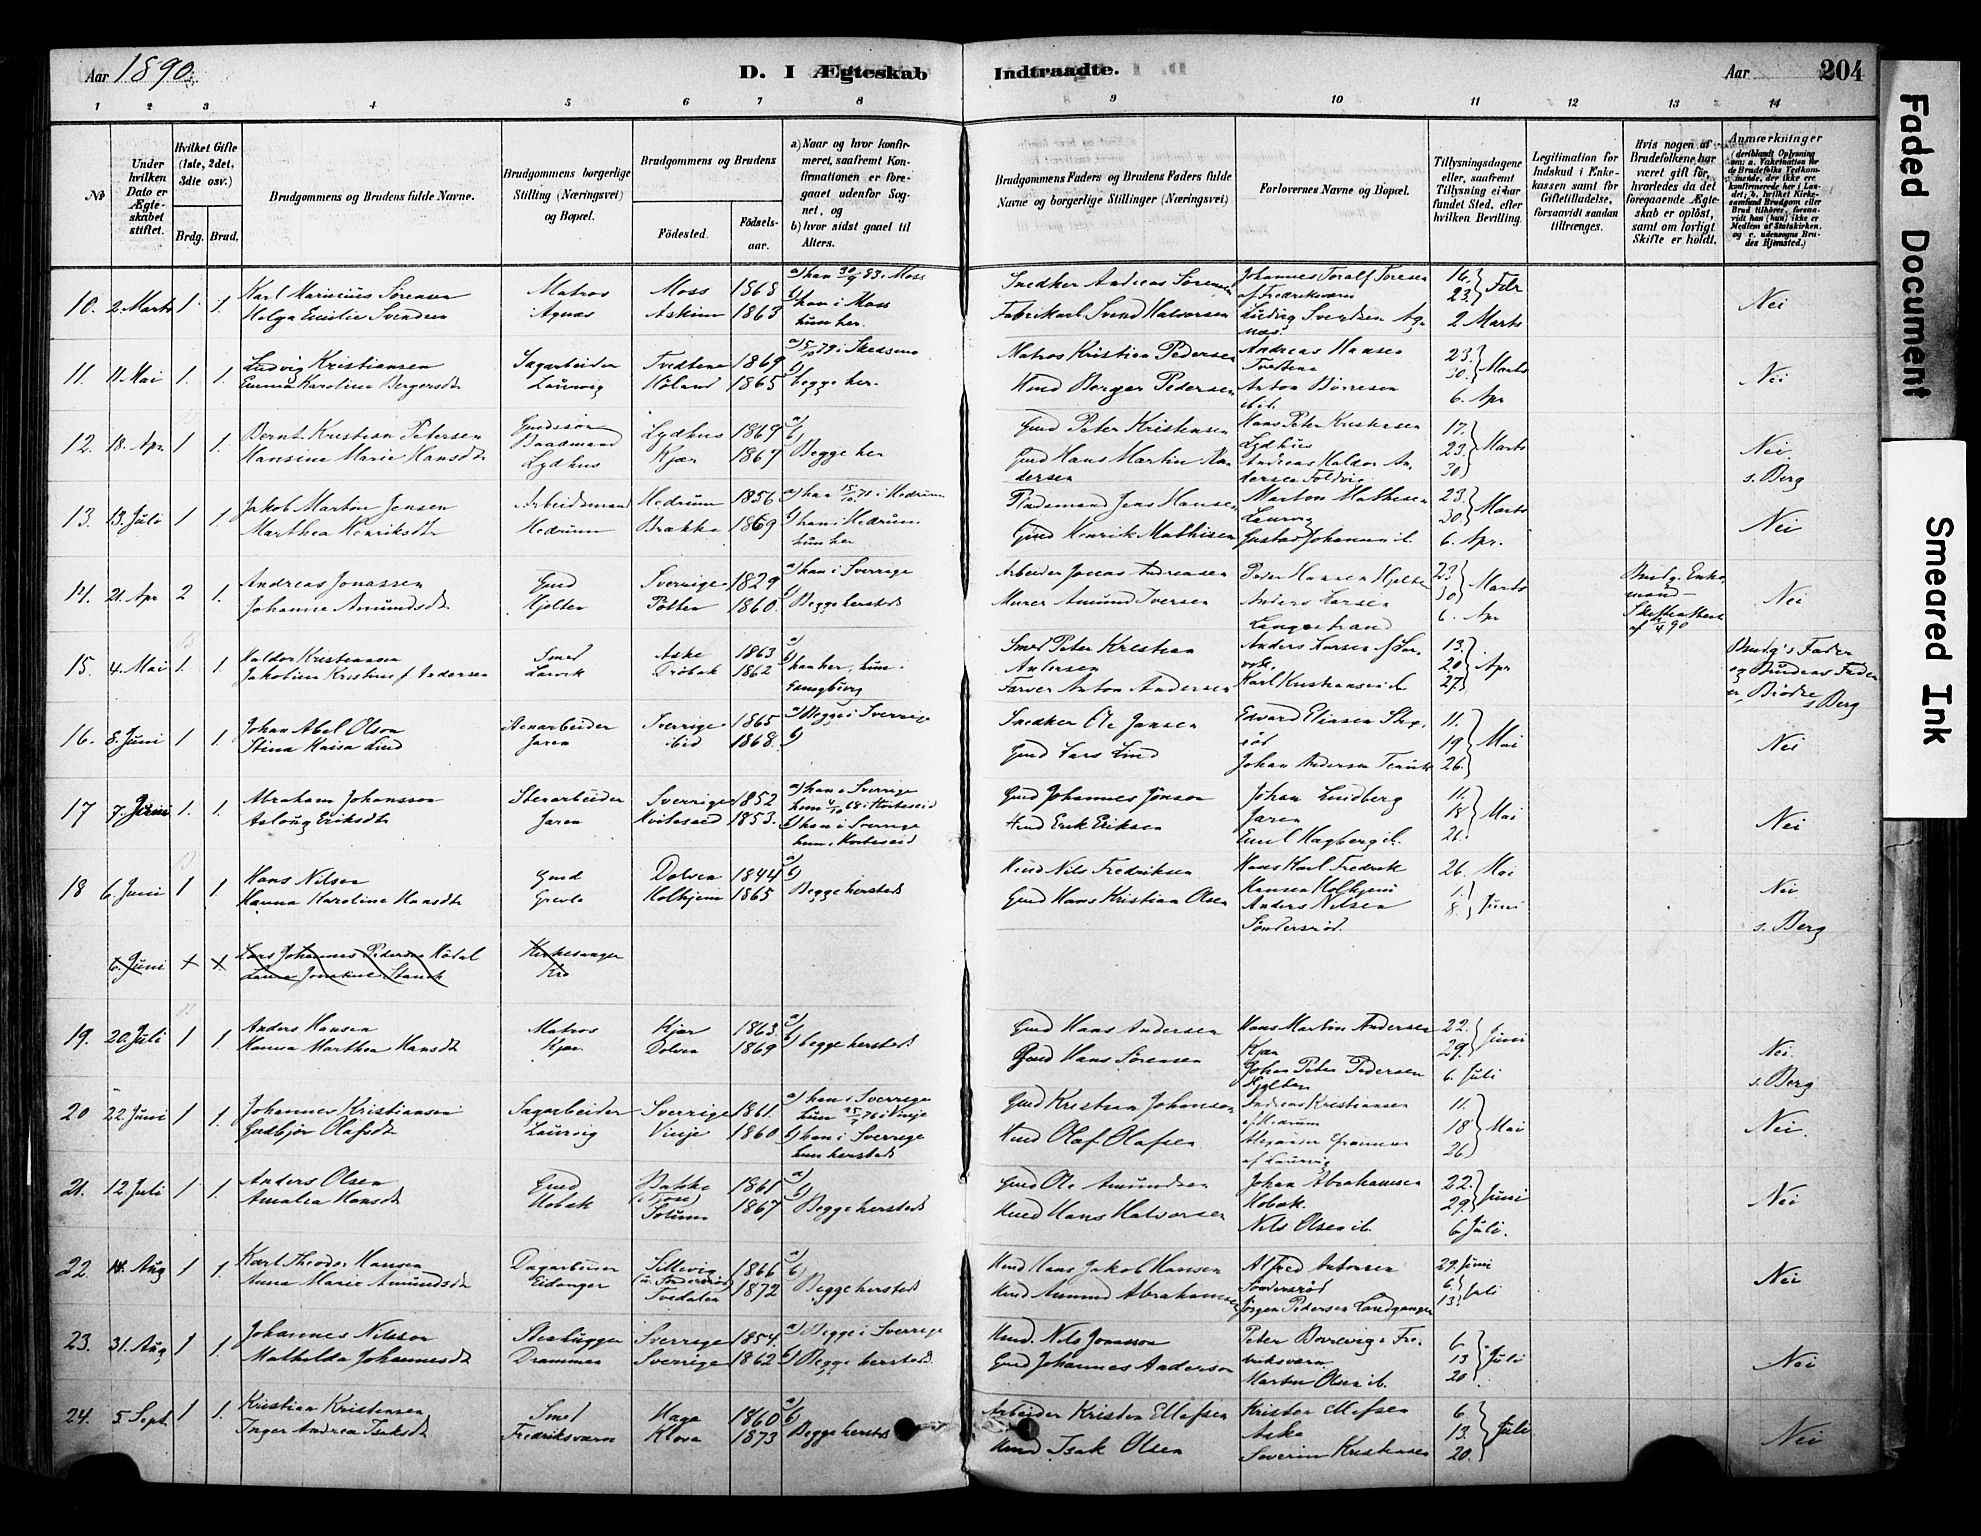 Aar 1890.
D. I Ægteskab Indtraadte.
Aar
204
1 2 3 4 5 6 7 8 9 10 11 12 13 14
№
Under hvilken Dato er Ægteskabet stiftet.
Hvilket Gifte (1ste, 2det, 3die osv.)
Brdg. Brud.
Brudgommens og Brudens fulde Navne.
Brudgommens borgerlige Stilling (Næringsvei) og Bopæl.
Brudgommens og Brudens
Fødested. Fødselsaar.
a) Naar og hvor konfirmeret, saafremt Konfirmationen er foregaaet udenfor Sognet, og
b) hvor sidst gaaet til Alters.
Brudgommens Faders og Brudens Faders fulde Navne og borgerlige Stillinger (Næringsvei)
Forlovernes Navne og Bopæl.
Tillysningsdagene eller, saafremt Tillysning ei har fundet Sted, efter hvilken Bevilling.
Legitimation for Indskud i Enkekassen samt for Giftetilladelse, forsaavidt saadan tiltrænges.
Hvis nogen af Brudefolkene har været gift før, hvorledes da det foregaaende Ægteskab er opløst, samt om lovligt Skifte er holdt.
Anmærkninger
(deriblandt Oplysning om: a. Vakcination for de Brudefolks Vedkommende, der ikke ere konfirmerede her i Landet; b. hvilket Kirkesamfund Brudgom eller Brud tilhører, forsaavidt han (hun) ikke er Medlem af Statskirken, og c. udensogns Brudes Hjemsted.)
10. 2 Marts 1. 1. Karl Marinius Sørensen Matros Moss 1868 a) han 30/9 83 i Moss Snedker Andreas Sørensen Johannes Toralf Toresen 16. Febr
Helga Emilie Svendsen Agnæs Askim 1863 b) han i Moss Fabrikarb. Svend Halvorsen af Fredriksværn 23. Nei
hun her. Ludvig Svendsen Agnæs 2 Marts
11. 11 Mai 1. 1. Ludvig Kristiansen Sagarbeider Tvedtene 1869 a) 5/10 79 i Skedsmo Matros Kristian Pedersen Andreas Hansen 23. Marts
Emma Karoline Bergersdt Laurvig Høland 1865 b) begge her. Hmd Berger Pedersen Tvetene 30. Nei
Anton Børresen ibid. 6. Apr
12. 18. Apr 1 1. Bernt Kristian Petersen Gmdssøn Lydhus 1869 a) Gmd Peter Kristensen Hans Peter Kristensen 17. Marts
Hansine Marie Hansdt Baadsmand Kjær 1867 b) Begge her Gmd Hans Martin Andersen Lydhus 23. Nei.
Lydhus Andreas Haldor Andersen Foldvig 30. s. Berg
13. 13. Juli 1 1. Jakob Martin Jensen Arbeidsmand Hedrum 1856 a) han 15/10 71 i Hedrum Pladsmand Jens Hansen Martin Mathisen 23. Marts
Marthea Henriksdt Hedrum Brække 1869 b) han i Hedrum Gmd Henrik Mathisen Laurvig 30. Nei
hun her Gustav Johansen ib. 6. Apr.
14. 21. Apr 2 1. Andreas Jonassen Gmd Sverrige 1829 a) han i Sverrige Arbeider Jonas Andreasen Peder Hansen Hjelten 23. Marts Brudg. Enkemand
Johanne Amundsdt Hjelten Tolten 1860 b) Begge hersteds Murer Amund Iversen Anders Larsen 30. Skifteattest Nei
Langestrand 6. Apr af 90
15. 4. Mai 1. 1. Haldor Kristiansen Smed Aske 1863 a) Smed Peter Kristian Andersen Anders Larsen 13. Apr Brudg's Fader
Jakobine Kristine f. Andersen Larvik Drøbak 1862 b) han her, hun i Farver Anton Andersen Karl Kristiansen ib 20 og Brudens Fader
Tønsberg 27. er Brødre s Berg
16. 8. Juni 1 1. Johan Abel Olson Stenarbeider Sverrige 1865 a) Begge i Sverrige Snedker Ole Jansen Edvard Eliasen 11. Mai
Stina Kaisa Lind Jaren ibid 1868. b) Gmd Lars Lind Johan Andersen 19 26. Nei
17 7. Juni 1. 1. Abraham Johansson Stenarbeider Sverrige 1852 a) han i Sverrige Gmd Johannes Jönson Johan Lindberg 11. Mai
Aslaug Eriksdt Jaren Kviteseid 1853. hun 4/10 68 i Kviteseid Hmd Erik Eriksen Jaren 18 Nei
b) han i Sverrige hun i Kviteseid Emil Hagberg ib. 26.
18 6. Juni 1 1 Hans Nilsen Gmd Dolven 1844 a) Hmd Nils Fredriksen Hans Karl Fredrik 26. Mai
Hanna Karoline Hansdt Grevle Holhjem 1865 b) Begge hersteds Gmd Hans Kristian Olsen Hansen Holhjem 1. Juni Nei
Anders Nilsen Søndersrød. 8. s. Berg
6. Juni Lars Johannes Pedersen Kirkesanger
19. 20. Juli 1 1. Anders Hansen Matros Kjær 1863 a) Gmd Hans Andersen Hans Martin Andersen 22. Juni
Hanna Marthea Hansdt Kjær Dolven 1869 b) begge hersteds Gmd Hans Sørensen Kjær 29. Nei.
Johan Peter Pedersen 6. Juli s. Berg
20 22. Juni 1 1. Johannes Kristiansen Sagarbeider Sverrige 1861. a) han i Sverrige Gmd Kristian Johanson Andreas Kristiansen 11. Mai
Gudbjør Olafsdt Laurvig Vinje 1860 hun 25/7 76 i Vinje Hmd Olaf Olafsen af Hedrum 18 Nei.
b) han i Sverrige hun hersteds af Laurvig 26
21. 12. Juli 1 1. Anders Olsen Gmd Bakke 1861 a) Gmd Ole Amundsen Johan Abrahamsen 22. Juni
Amalia Hansdt Hobæk 1867 b) Begge hersteds Hmd Hans Halvorsen Hobæk. 29. Nei
Nils Olsen ib. 6. Juli.
22. 14. Aug 1 1. Karl Theodor Hansen Dagarbeider 1866 a) Hmd Hans Jakob Hansen Alfred Antonsen 29. Juni
Anna Marie Amundsdt Eidanger Tvedalen 1872 b) Begge hersteds Hmd Amund Abrahamsen Søndersrød 6. Juli Nei
Jørgen Pedersen Landganger 13.
23. 31. Aug 1 1. Johannes Nilsson Stenhugger Sverrige 1854. a) Begge i Sverrige Hmd. Nils Jonasson Peter Borrevig Fredriksværn 6. Juli
Mathilda Johannesdt Drammen Sverrige 1862 b) Begge hersteds. Gmd Johannes Anderson Martin Olsen ib. 13 20 Nei
24. 5 Sept. 1 1. Kristian Kristensen Smed Haga 1860 a) Arbeider Kristen Ellefsen Kristen Ellefsen 6. Juli
Inger Andrea Isaksdt Fredriksværn Klova 1873 b) Begge herstds Hmd Isak Olsen Aske 13. Nei
Severin Kristensen 20.
Faded Document
Smeared Ink